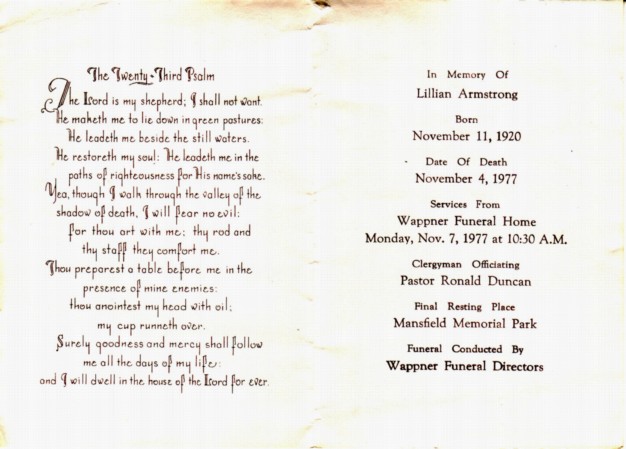 The Twenty-Third Psalm
The Lord is my shepherd; I shall not want.
He maketh me to lie down in green pastures:
He leadeth me beside the still waters.
He restoreth my soul: He leadeth me in the
paths of righteousness for His name's sake.
Yea, though I walk through the valley of the
shadow of death, I will fear no evil:
for thou art with me; thy rod and
thy staff they comfort me.
Thou preparest a table before me in the
presence of mine enemies:
thou anointest my head with oil;
my cup runneth over.
Surely goodness and mercy shall follow
me all the days of my life:
and I will dwell in the house of the Lord for ever.
In Memory Of
Lillian Armstrong
Born
November 11, 1920
Date Of Death
November 4, 1977
Services From
Wappner Funeral Home
Monday, Nov. 7, 1977 at 10:30 A.M.
Clergyman Officiating
Pastor Ronald Duncan
Final Resting Place
Mansfield Memorial Park
Funeral Conducted By
Wappner Funeral Directors